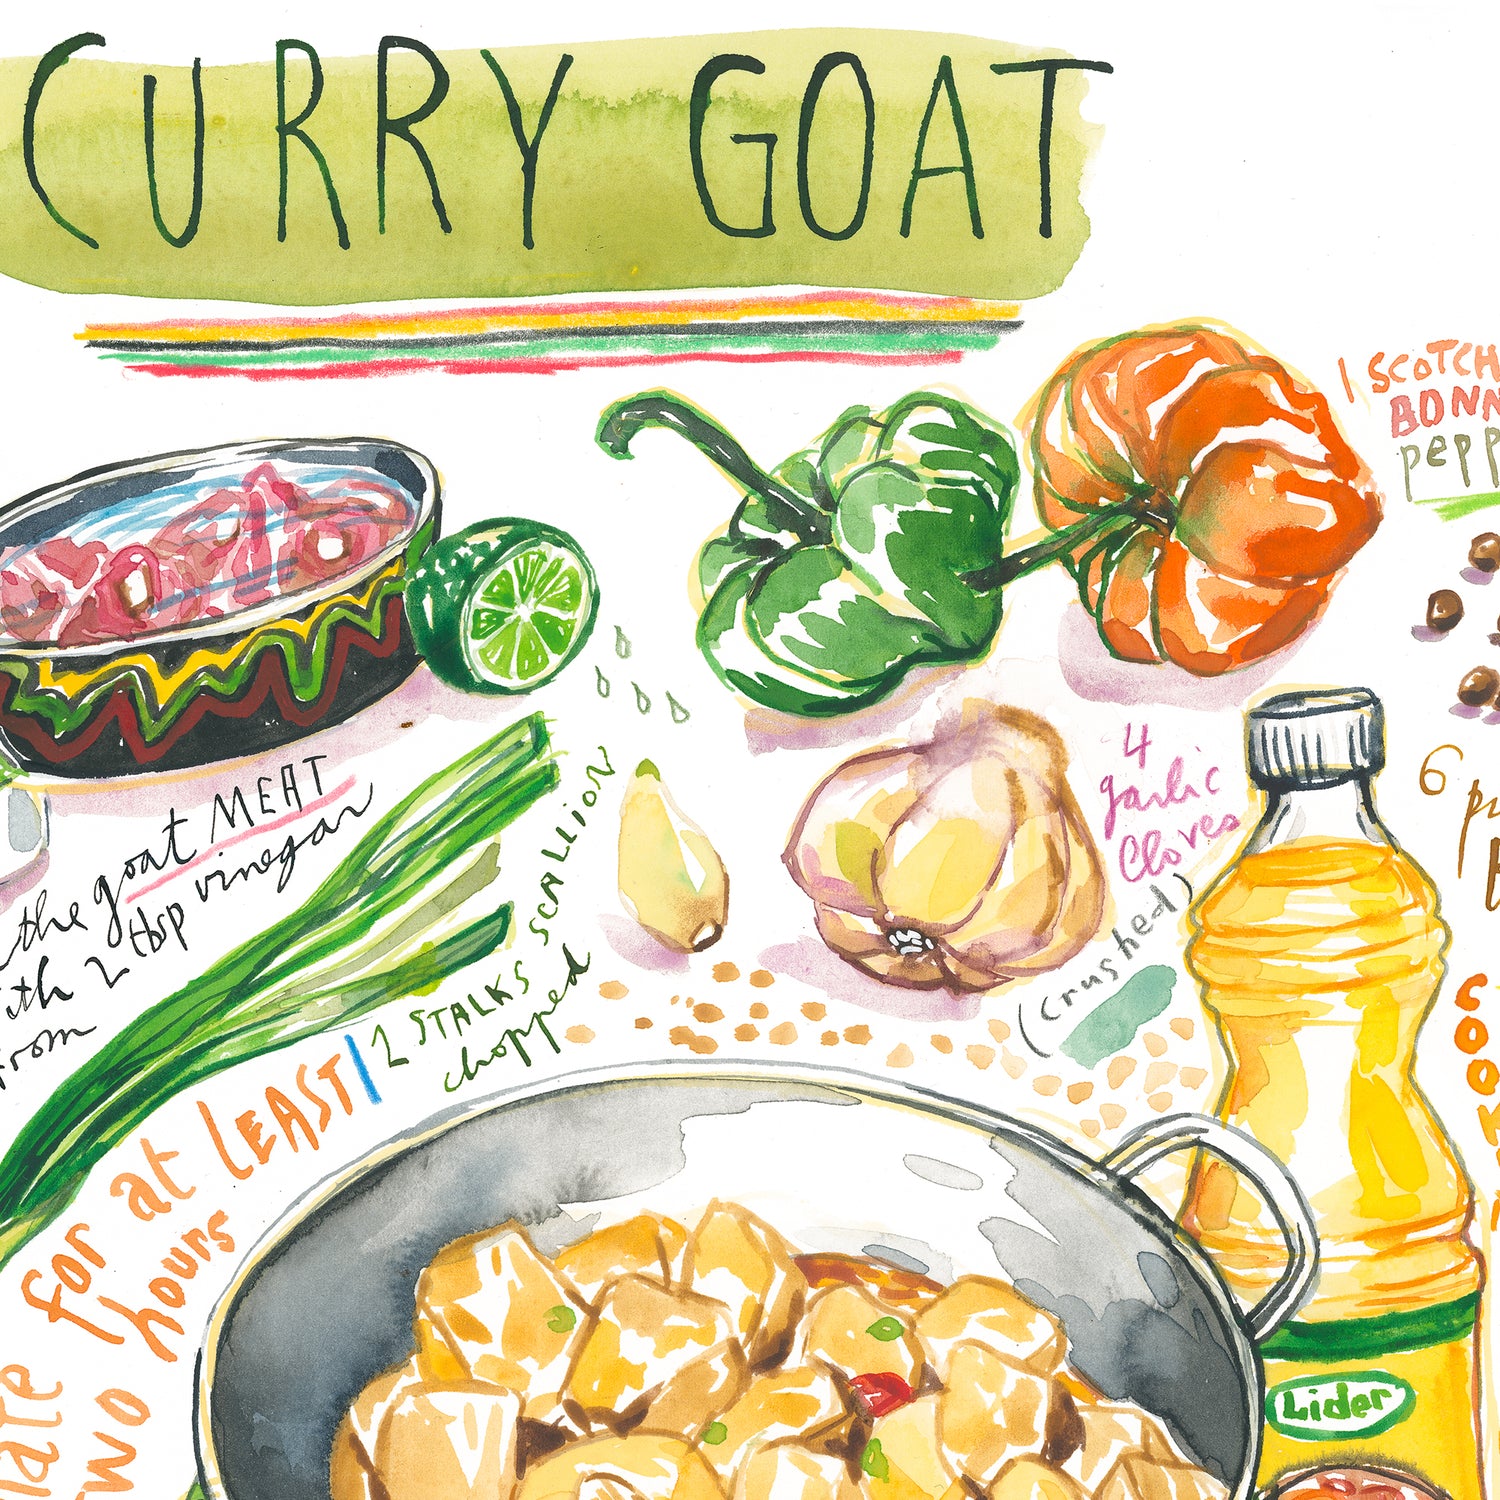 CURRY GOAT
1 SCOTCH
BONN
pepp
the goat MEAT
with 2 tbsp vinegar
from
2 STALKS SCALLION
chopped
4
garlic
Cloves
(crushed)
6
COOK
for at LEAST
two hours
Lider